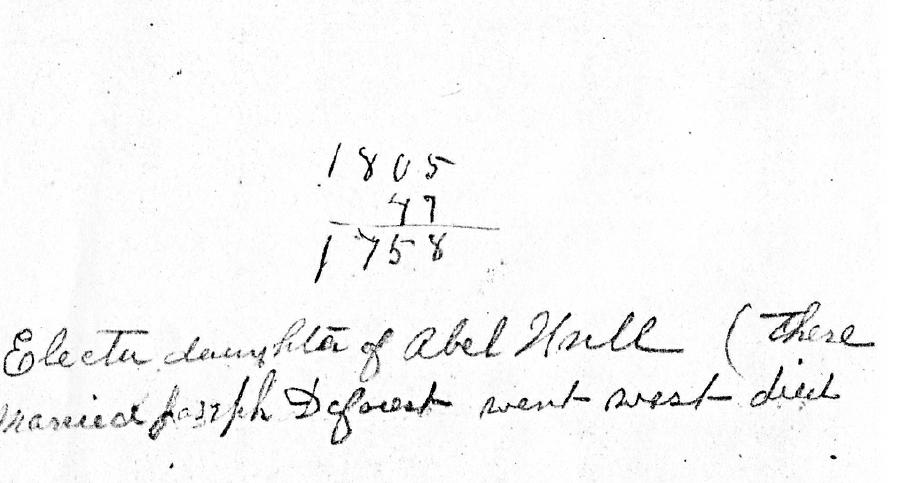 1805
47
1758
Electa daughter of Abel Hull (there
married Joseph Deforest went west died